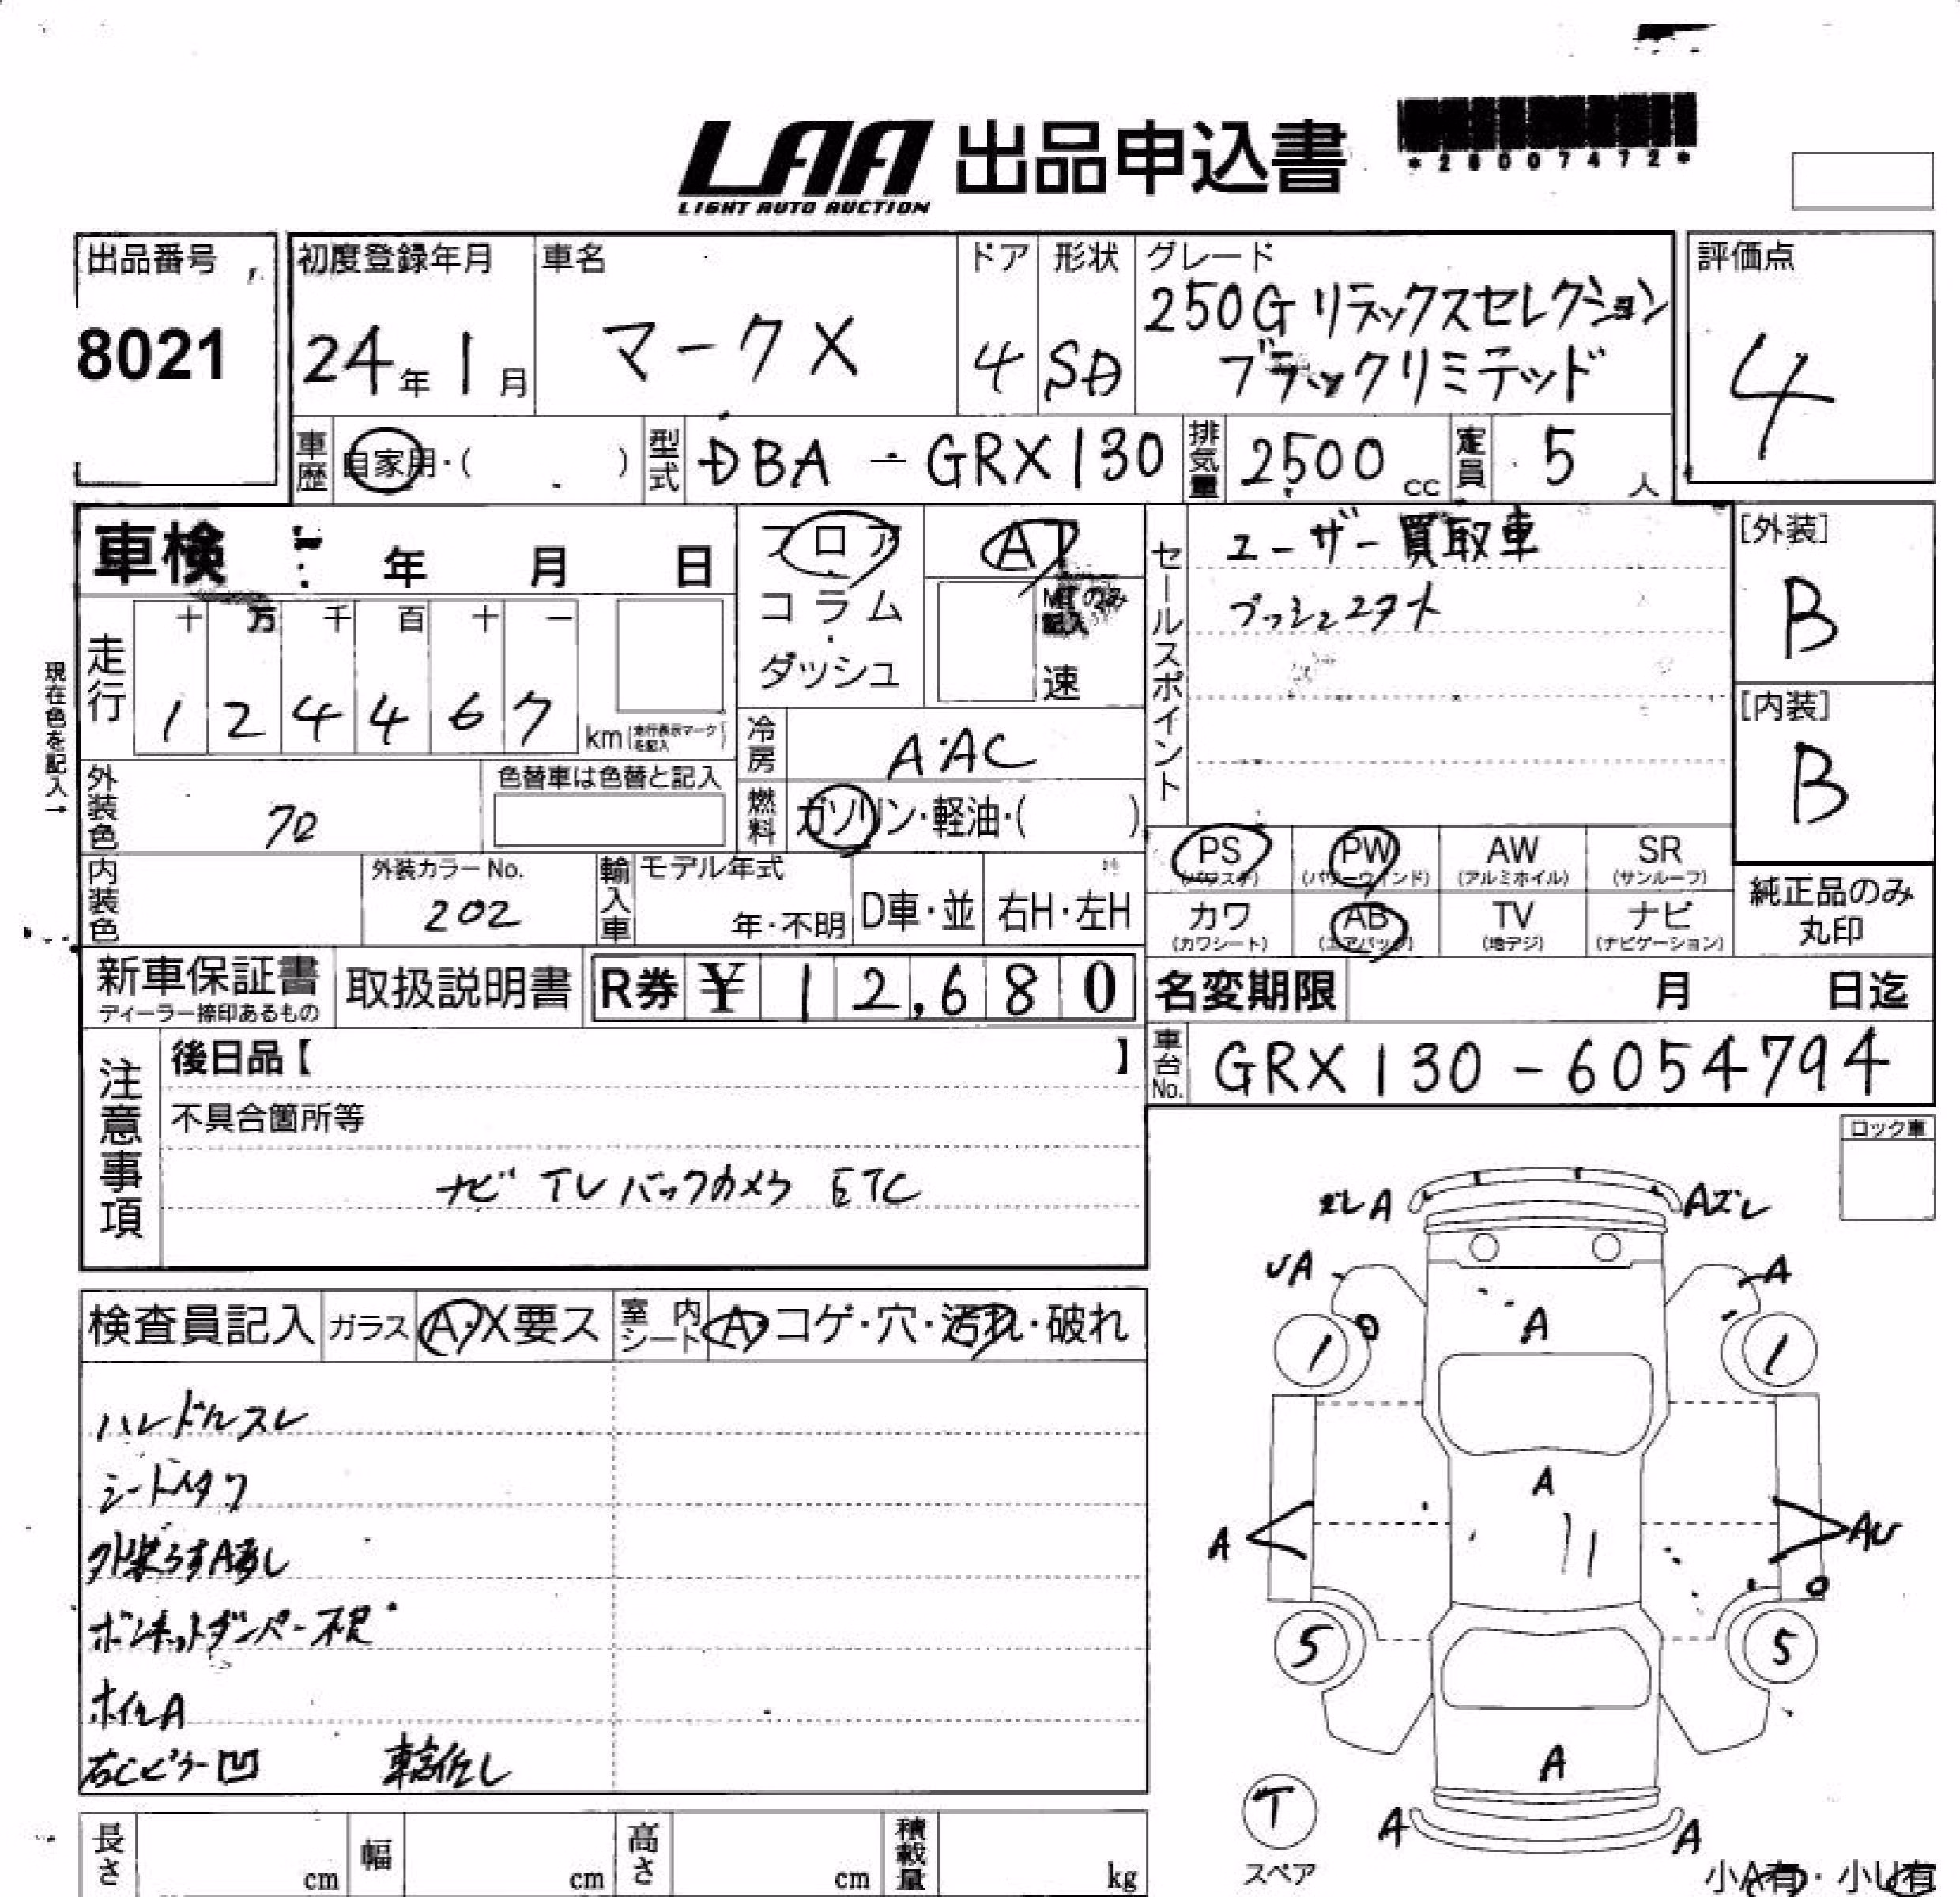 LAA 出品申込書
LIGHT AUTO AUCTION
*28007472*
出品番号
8021
初度登録年月
24年 1月
車名
マークX
ドア
4
形状
SD
グレード
250G リラックスセレクション
ブラックリミテッド
評価点
4
車歴 自家用・( )
型式 DBA - GRX130
排気量 2500 cc
定員 5 人
車検 年 月 日
フロア
コラム
ダッシュ
AT
MTのみ記入
速
セールスポイント
ユーザー買取車
プッシュスタート
[外装]
B
[内装]
B
現在色を記入→
走行
十 万 千 百 十 一
1 2 4 4 6 7
km (走行表示マークを記入)
冷房 AAC
外装色 クロ
色替車は色替と記入
燃料 ガソリン・軽油・( )
内装色
外装カラーNo.
202
輸入車 モデル年式
年・不明
D車・並
右H・左H
PS (パワステ)
PW (パワーウインド)
AW (アルミホイル)
SR (サンルーフ)
カワ (カワシート)
AB (エアバック)
TV (地デジ)
ナビ (ナビゲーション)
純正品のみ
丸印
新車保証書
ディーラー捺印あるもの
取扱説明書
R券 ¥ 12,680
名変期限 月 日迄
車台No. GRX130-6054794
注意事項
後日品【 】
不具合箇所等
ナビ TV バックカメラ ETC
ロック車
検査員記入
ガラス A・X要ス
室内シート A・コゲ・穴・汚れ・破れ
ハンドルスレ
シートヘタリ
外装うすA有し
ボンネットダンパー不良
ホイルA
右Cピラー凹
ズレA
Aズレ
UA
A
A
1
1
A
A
AU
5
5
A
T
スペア
A
A
小A有・小U有
長さ cm
幅 cm
高さ cm
積載量 kg